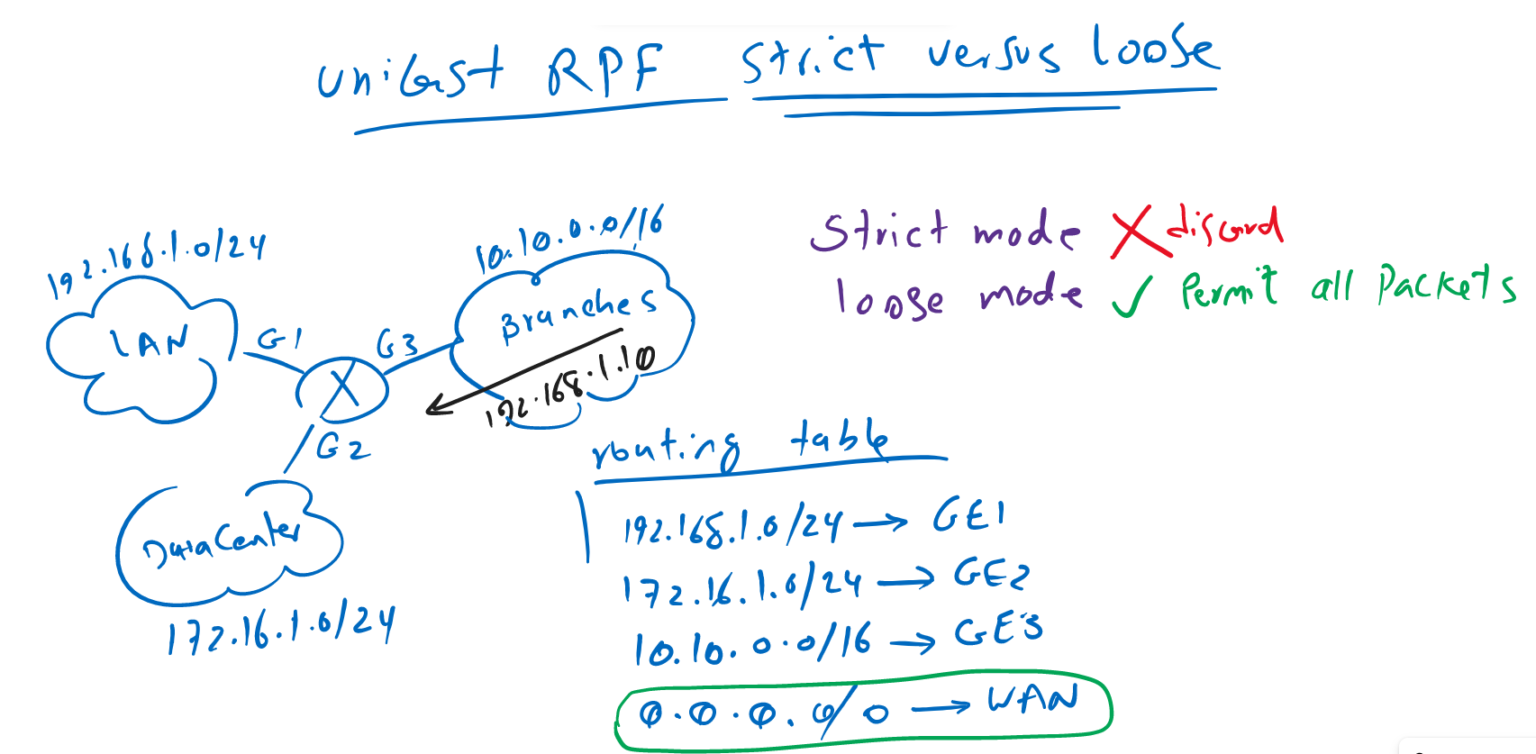 unicast RPF strict versus loose
192.168.1.0/24
10.10.0.0/16
strict mode X discard
loose mode ✓ Permit all Packets
LAN
G1
G3
Branches
192.168.1.10
X
G2
routing table
Data Center
172.16.1.0/24
192.168.1.0/24 → GE1
172.16.1.0/24 → GE2
10.10.0.0/16 → GE3
0.0.0.0/0 → WAN